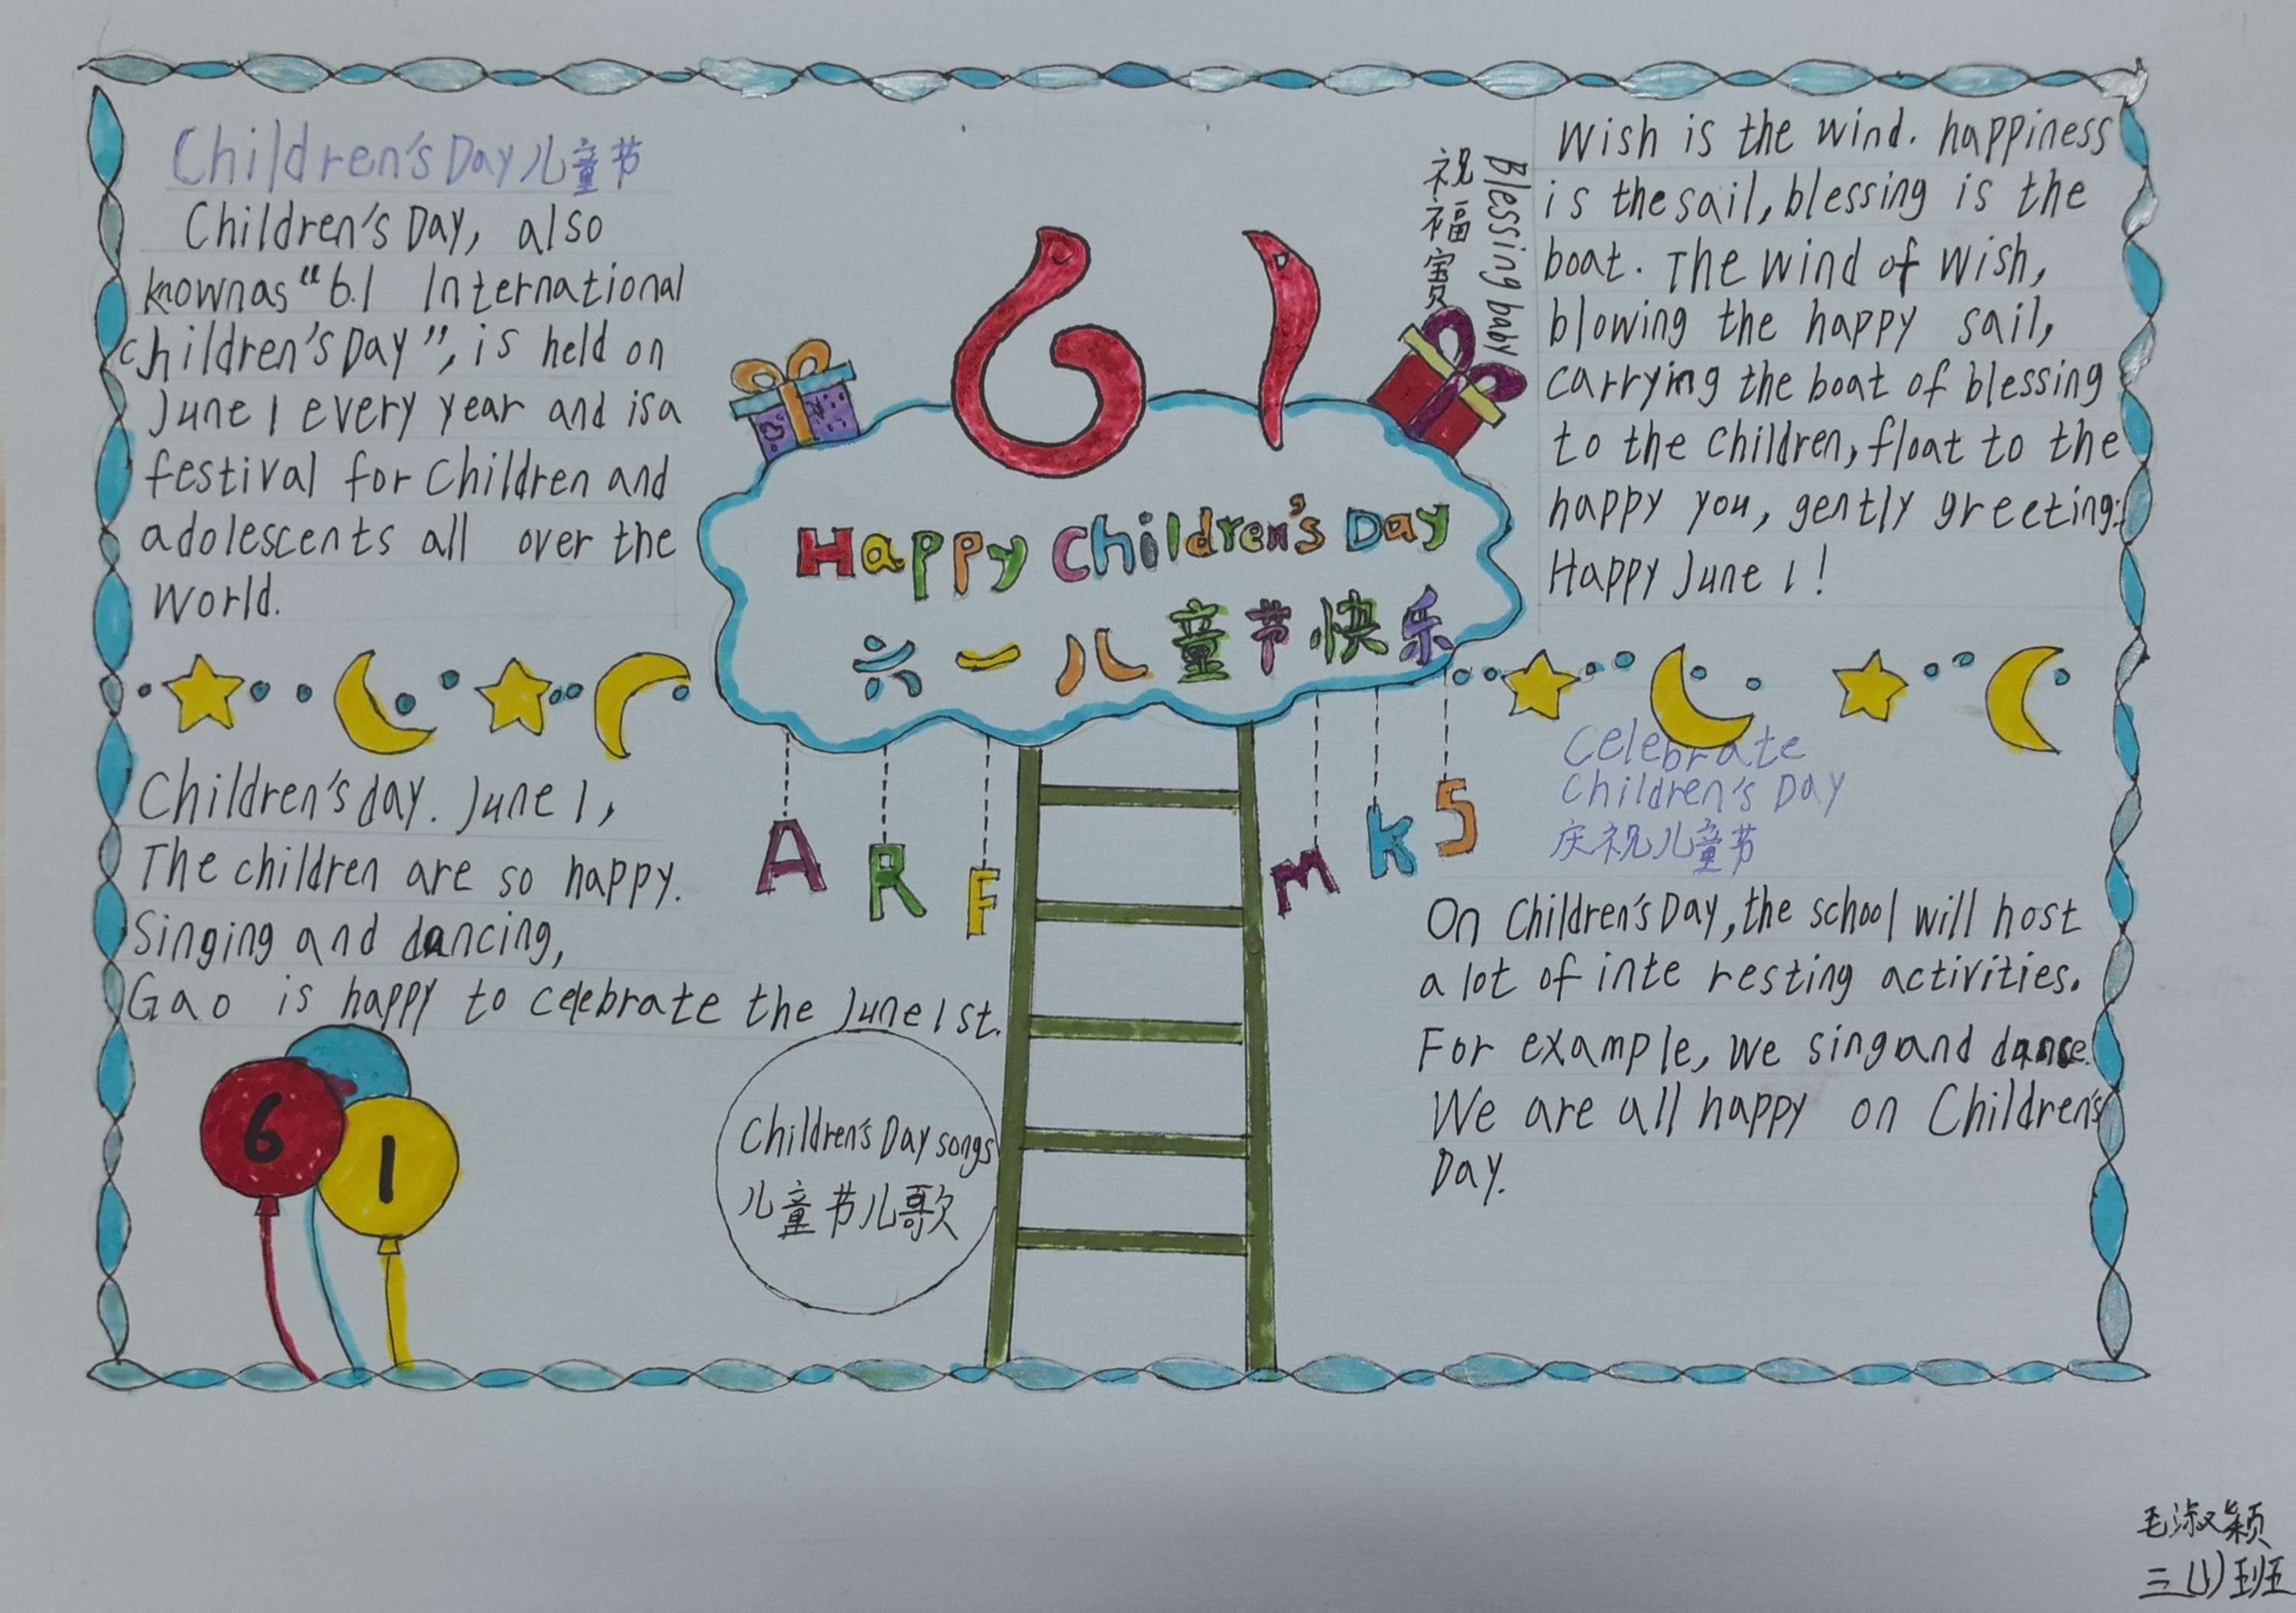 Children's Day儿童节
Children's Day, also
knownas "6.1 International
children's Day", is held on
June 1 every year and isa
festival for Children and
adolescents all over the
World.
61
Happy Children's Day
六一儿童节快乐
祝福宝贝
Blessing baby
Wish is the wind. happiness
is thesail, blessing is the
boat. The wind of wish,
blowing the happy sail,
carrying the boat of blessing
to the children, float to the
happy you, gently greeting:
Happy June 1!
Children's day. June 1,
The children are so happy.
Singing and dancing,
Gao is happy to celebrate the June 1st.
A R F
M K S
6 1
Children's Day songs
儿童节儿歌
Celebrate
Children's Day
庆祝儿童节
On Children's Day, the school will host
a lot of inte resting activities.
For example, we singand dance.
We are all happy on Children's
Day.
毛淑颖
三(1)班